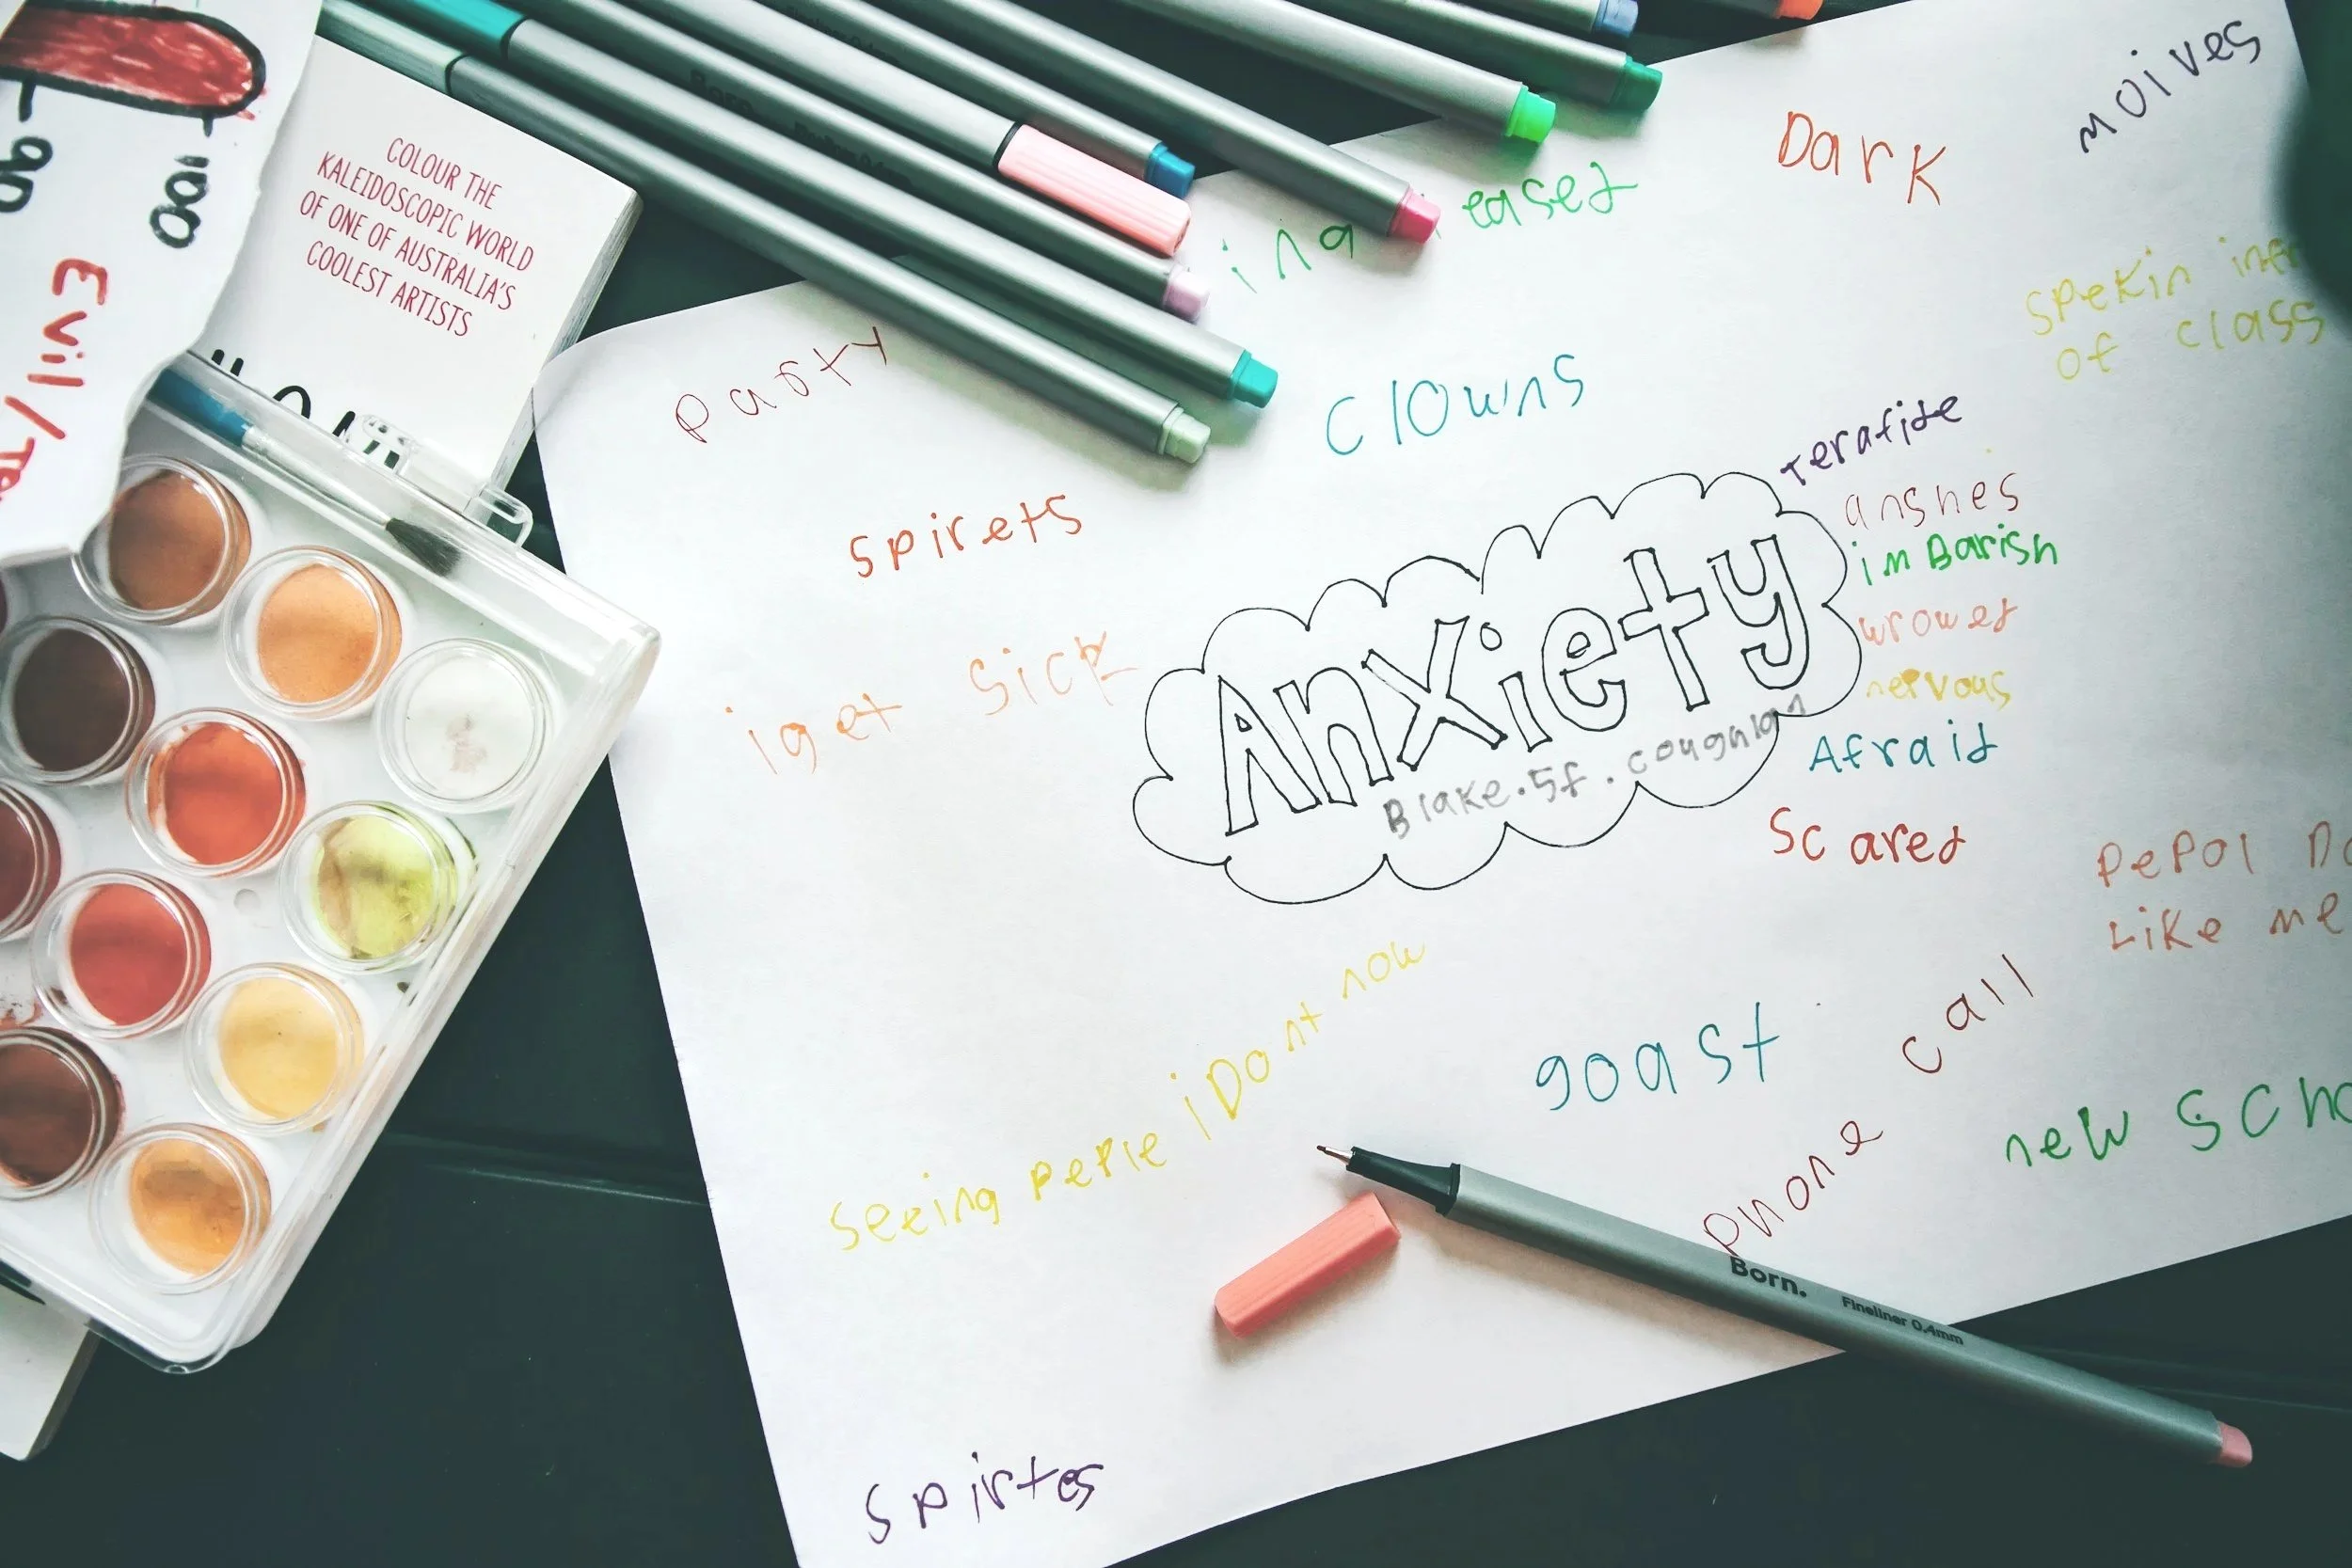 COLOUR THE
KALEIDOSCOPIC WORLD
OF ONE OF AUSTRALIA'S
COOLEST ARTISTS
Evil/
Dark
moives
spekin
of class
party
clowns
spirets
iget sick
Anxiety
Blake.5f.coughlan
Terafide
anshes
imBarish
wrowed
nervous
Afraid
Scared
pepol
Like me
seeing peple iDont now
goast
phone call
new
spirtes
Born.
Fineliner 0.4mm
Born.